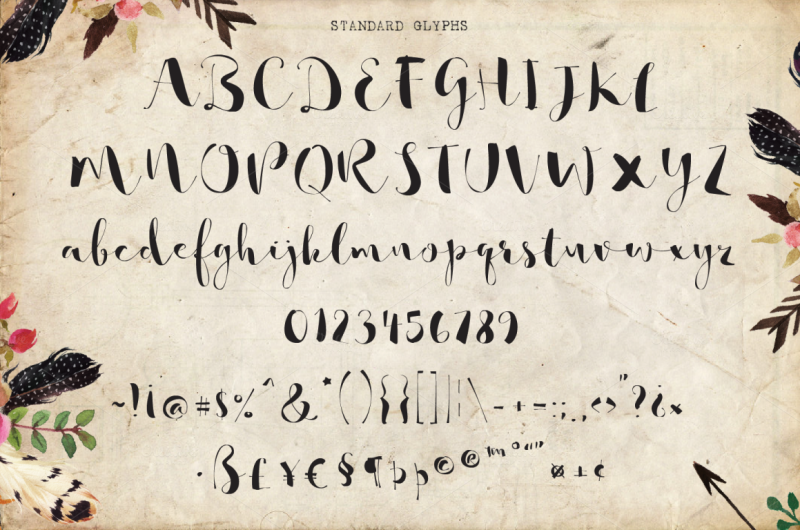 STANDARD GLYPHS
ABCDEFGHIJKL
MNOPQRSTUVWXYZ
abcdefghijklmnopqrstuvwxyz
0123456789
~!¡@#$%^&*(){}[]|¦\-+=:;.,<>"?¿×
·ß£¥€§¶Þþ©®™°“”¤±¢